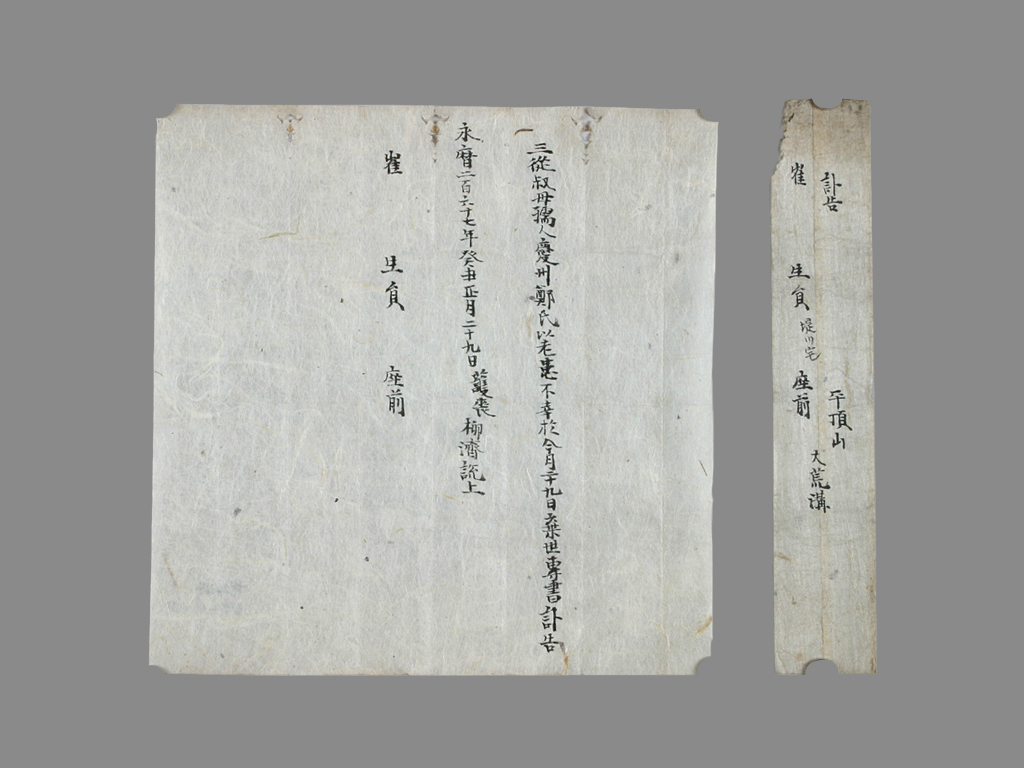 三從叔母孺人慶州鄭氏以老患不幸於今月二十九日棄世專書訃告
永曆二百六十七年癸丑正月二十九日護喪柳濟
上
崔 生員 座前
訃告
平頂山
大荒溝
崔 生員 堤川宅 座前